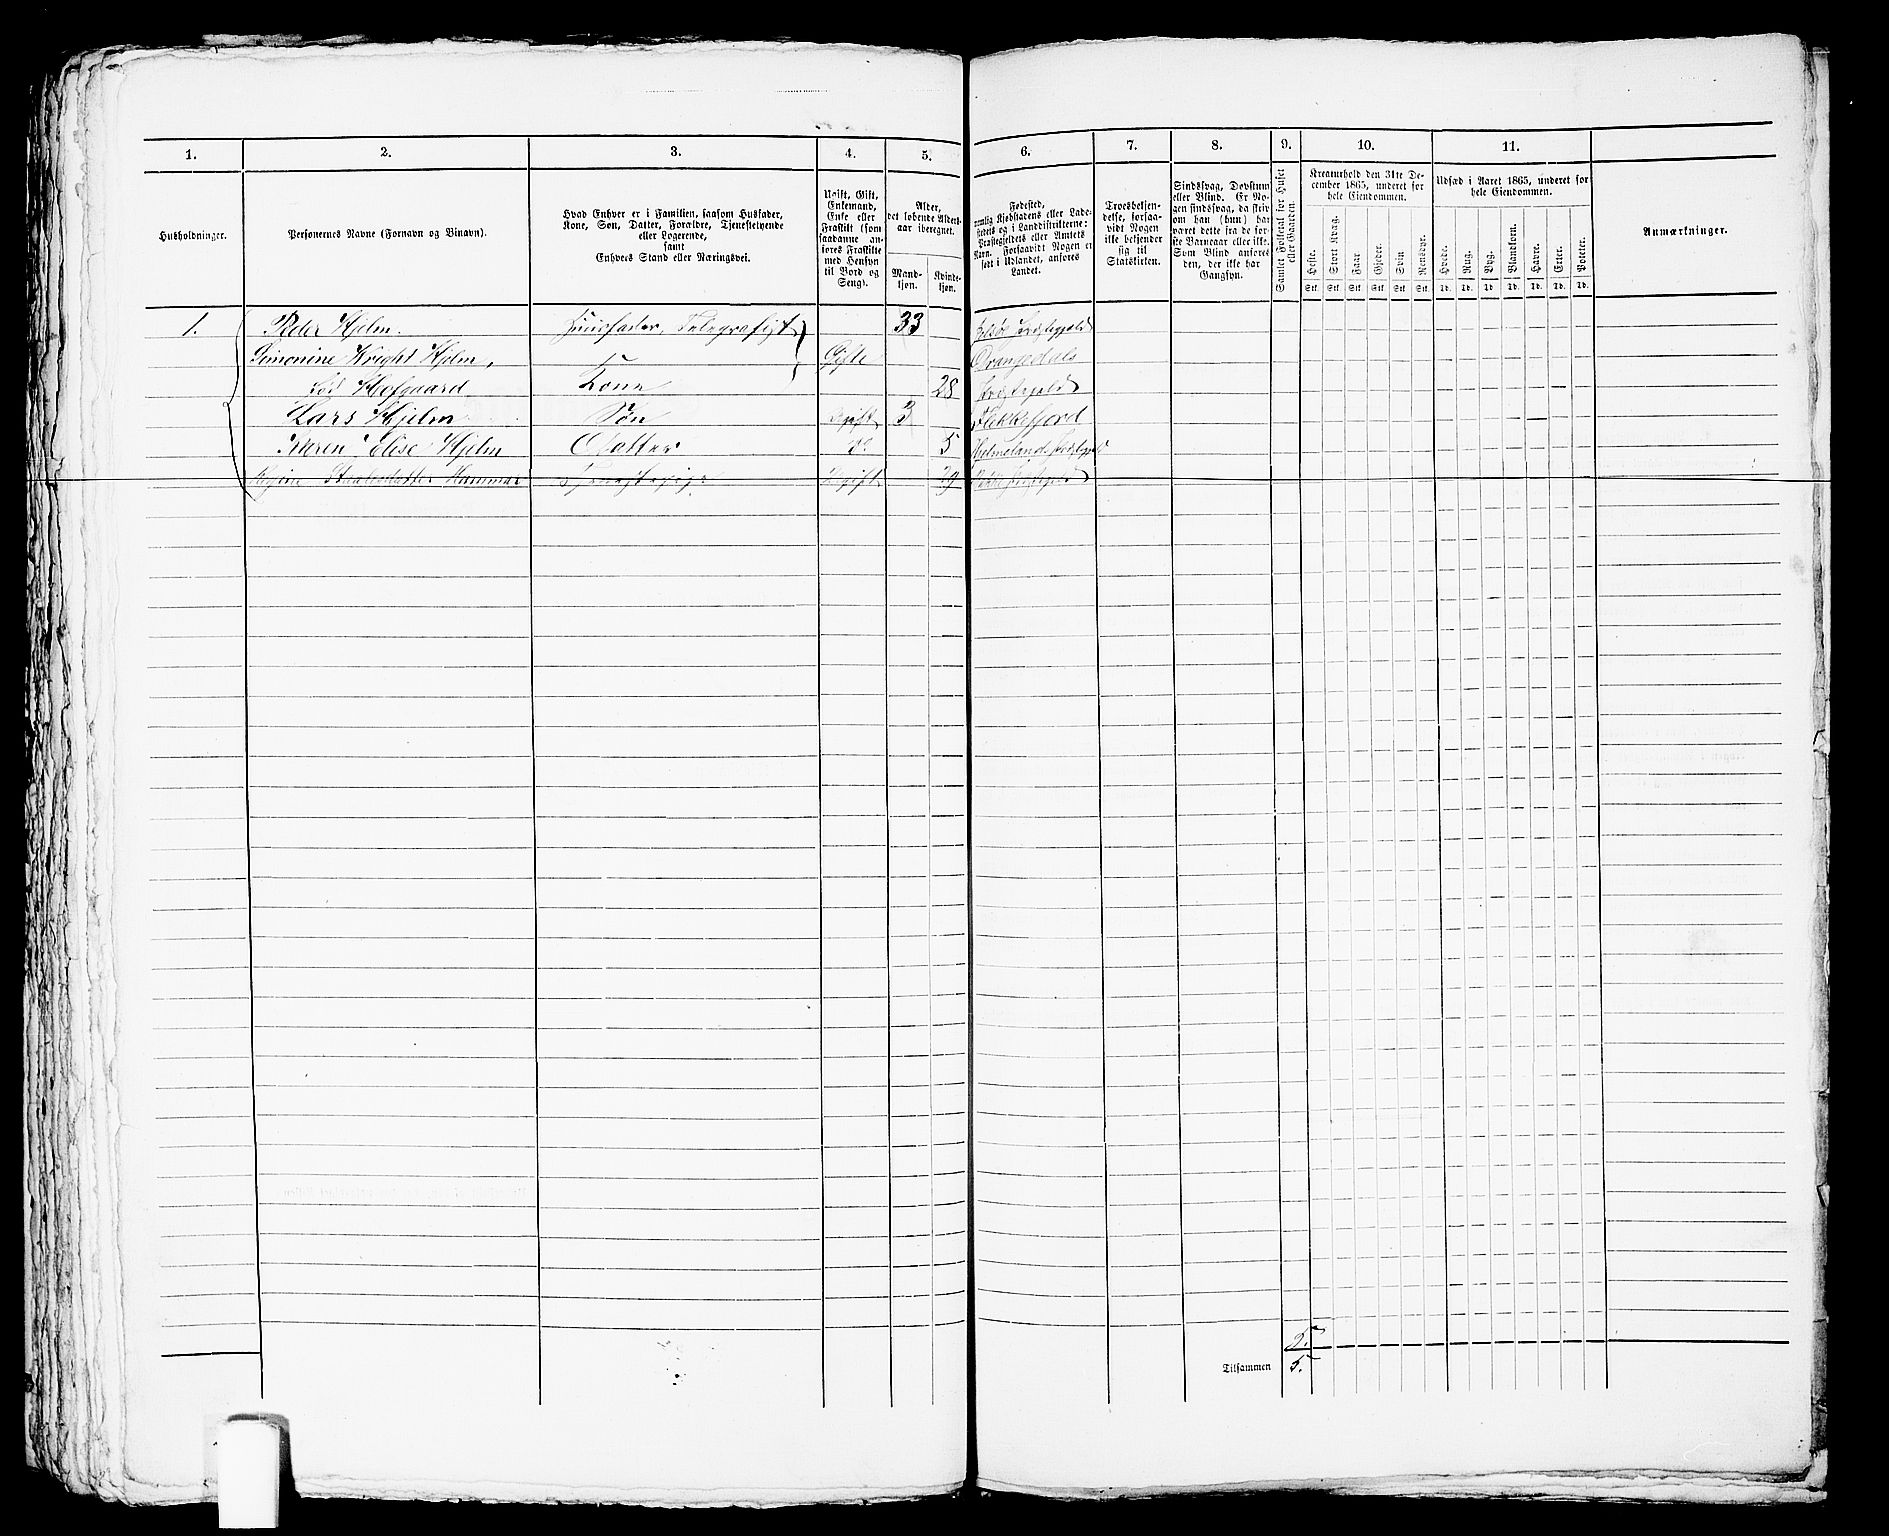 1. 2. 3. 4. 5. 6. 7. 8. 9. 10. 11.
Husholdninger.
Personernes Navne (Fornavn og Binavn).
Hvad Enhver er i Familien, saasom Husfader,
Kone, Søn, Datter, Forældre, Tjenestetyende
eller Logerende,
samt
Enhvers Stand eller Næringsvei.
Ugift, Gift,
Enkemand,
Enke eller
Fraskilt (som
saadanne an-
føres Fraskilte
med Hensyn
til Bord og
Seng).
Alder,
det løbende Alders-
aar iberegnet.
Mand-
kjøn.
Kvinde-
kjøn.
Fødested,
nemlig Kjøbstadens eller Lade-
stedets og i Landdistrikterne:
Præstegjeldets eller Amtets
Navn. Forsaavidt Nogen er
født i Udlandet, anføres
Landet.
Troesbekjen-
delse, forsaa-
vidt Nogen
ikke bekjender
sig til
Statskirken.
Sindssvag, Døvstum
eller Blind. Er No-
gen sindssvag, da skriv
om han (hun) har
været dette fra de før-
ste Barneaar eller ikke.
Som Blind anføres
den, der ikke har
Gangsyn.
Samlet Folketal for Huset
eller Gaarden.
Kreaturhold den 31te De-
cember 1865, underet for
hele Eiendommen.
Heste. Stort Kvæg. Faar Gjeder. Svin Rensdyr.
Stk. Stk. Stk. Stk. Stk. Stk.
Udsæd i Aaret 1865, underet for
hele Eiendommen.
Hvede. Rug. Byg. Blandkorn. Havre. Erter. Poteter.
Td. Td. Td. Td. Td. Td. Td.
Anmærkninger.
1. Peder Hjelm. Huusfader, Telegrafist 33 Præstegjeld
Simonine Wright Hjelm, Gifte Drangedals
fød Hofgaard Kone 28 Præstegjeld
Lars Hjelm Søn Ugift 3 Flekkefjord
Karen Elise Hjelm Datter do 5
Hammar Tjenestepige Ugift 29
5.
Tilsammen 5.